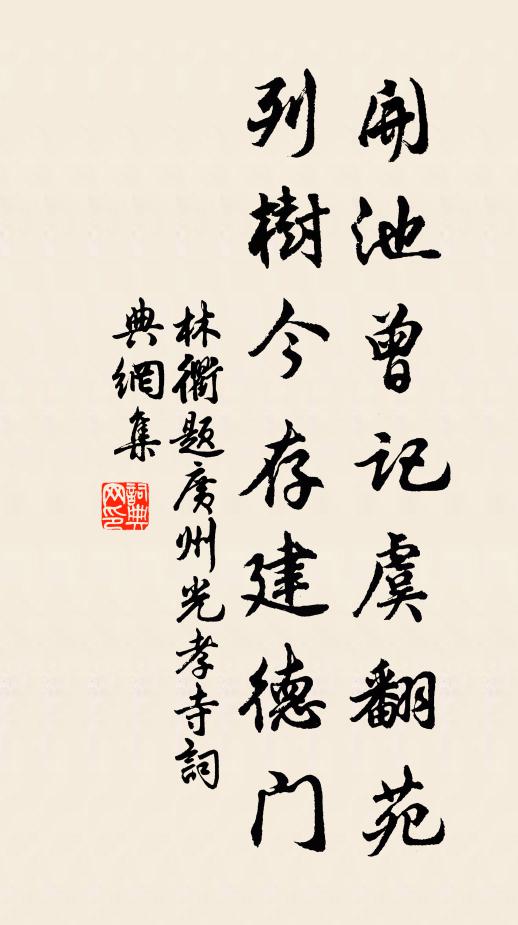 開池曾記虞翻苑
列樹今存建德门
林衢题廣州光孝寺詞
典網集
詞典网印